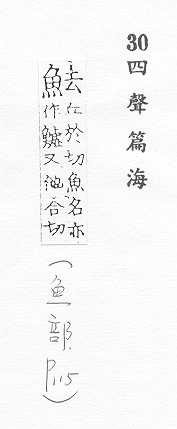 30四聲篇海
魼丘於切魚名亦
作鱋又合切
(魚部.P115)